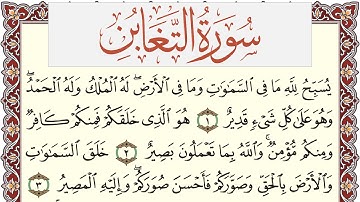 سُورَةُ التَّغَابُنِ
يُسَبِّحُ لِلَّهِ مَا فِي السَّمَٰوَٰتِ وَمَا فِي الْأَرْضِ ۖ لَهُ الْمُلْكُ وَلَهُ الْحَمْدُ ۖ
وَهُوَ عَلَىٰ كُلِّ شَيْءٍ قَدِيرٌ ١ هُوَ الَّذِي خَلَقَكُمْ فَمِنكُمْ كَافِرٌ
وَمِنكُم مُّؤْمِنٌ ۚ وَاللَّهُ بِمَا تَعْمَلُونَ بَصِيرٌ ٢ خَلَقَ السَّمَٰوَٰتِ
وَالْأَرْضَ بِالْحَقِّ وَصَوَّرَكُمْ فَأَحْسَنَ صُوَرَكُمْ ۖ وَإِلَيْهِ الْمَصِيرُ ٣